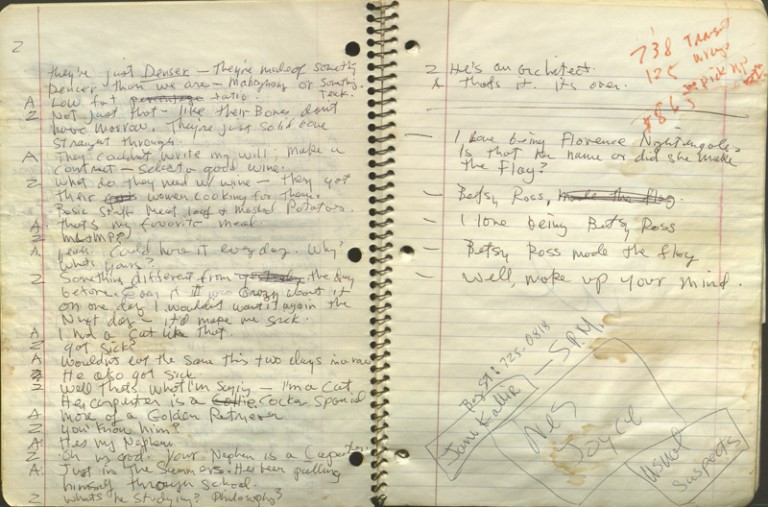 2
they're just Denser — They're made of something
Denser than we are — Mahoghany or something.
Teak.
A Low fat percentage ratio.
Z Not just that — like their Bones don't
have morrow. They're just solid bone
straight through.
A They couldn't write my will; make a
contract — select a good wine.
Z what do they need us wine — they got
Their women cooking for them.
Basic stuff Meat loaf & Mashed Potatoes.
A that's my favorite meal.
Z
A Could have it every day. Why?
What's yours?
Z Something different from yesterday the day
before. Crazy about it
on one day I wouldn't want it again the
Next day — it'd make me sick.
A I had a cat like that.
Z got sick?
A Wouldn't eat the same two days in a row
Z He also got sick
Z Well that's what I'm saying — I'm a cat
Her carpenter is a Collie Cocker Spaniel
A More of a Golden Retriever
Z you know him?
A He's my Nephew
Z oh my god. Your Nephew is a Carpenter.
A. Just in the summers. He's been putting
himself through school.
Z What's he studying? Philosophy?
Z He's an architect.
A that's it. it's over.
738 Transit
125
pick up
$863
— I love being Florence Nightengale.
Is that the name or did she make
the flag?
— Betsy Ross, made the flag.
— I love being Betsy Ross
— Betsy Ross made the flag
— Well, make up your mind.
725.0818
— 5 P.M.
Joyce
Usual
Suspects